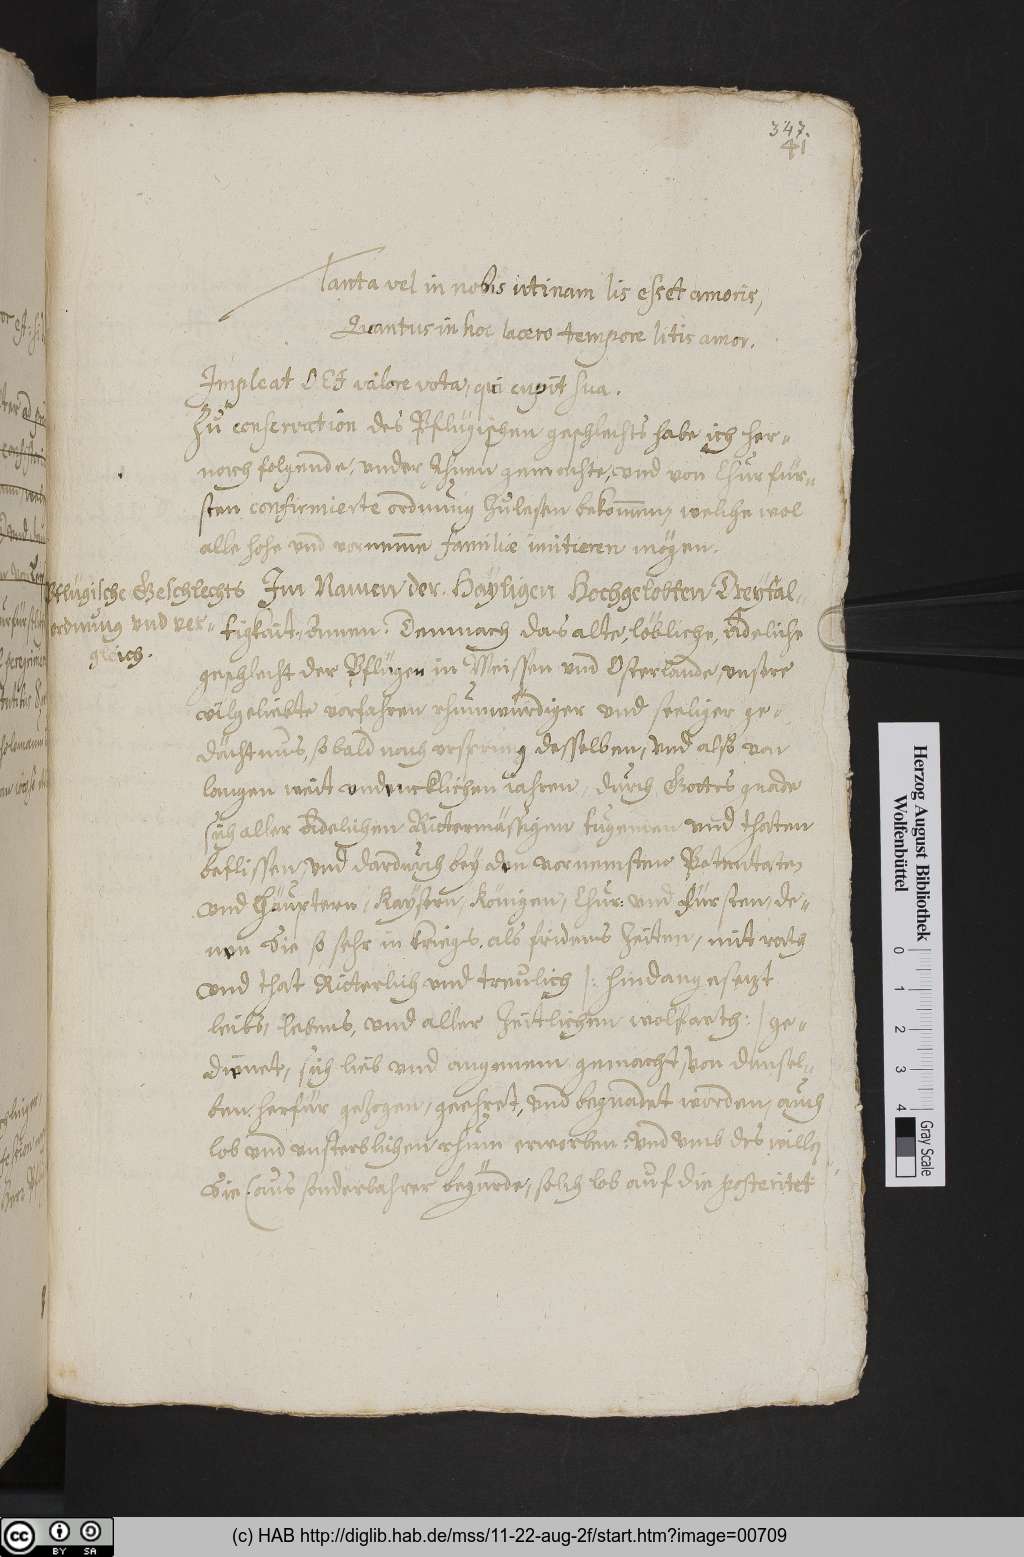 347.
41
Tanta vel in nobis utinam lis esset amoris,
Quantus in hoc lacero tempore litis amor.
Impleat DEI valore vota, qui cupit sua.
Zu conservation des Pflügischen geschlechts habe ich her-
noch folgende, under Ihnen gemachte, und von Churfür-
sten confirmierte ordnung zulesen bekommen, welche wol
alle hohe und vorneme familiæ imitieren mögen.
Pflügische Geschlechts
ordnung und ver-
gleich.
Im Namen der Hayligen Hochgelobten Dreyfal-
tigkait, Amen. Demnach das alte, löbliche, Adeliche
geschlecht der Pflügen in Meissen und Osterlande, unsere
vilgeliebte vorfahren rhumwürdiger und seeliger ge-
dächtnus, so bald noch ursprung desselben, und also von
langen weit undencklichen iahren, durch Gottes gnade
sich aller Adelichen Rittermässigen tugenten und thaten
beflissen, und dardurch bey den vornemsten Potentaten
und Häuptern, Kaysern, Königen, Chur: und Fürsten, de-
nen Sie so sehr in kriegs. als fridens zeiten, mit rath
und that Ritterlich und treulich |: hindangesezt
leibs, lebens, und aller zeitlichen wolfarth: | ge-
dienet, sich lieb und angenem gemacht, von densel-
ben herfür gezogen, geehret, und begnadet worden, auch
lob und unsterblichen rhum erworben: und umb des willen
Sie (aus sonderbahrer begürde, solch lob auf die posteritet
Herzog August Bibliothek
Wolfenbüttel
0 1 2 3 4
Gray Scale
cc BY SA
(c) HAB http://diglib.hab.de/mss/11-22-aug-2f/start.htm?image=00709